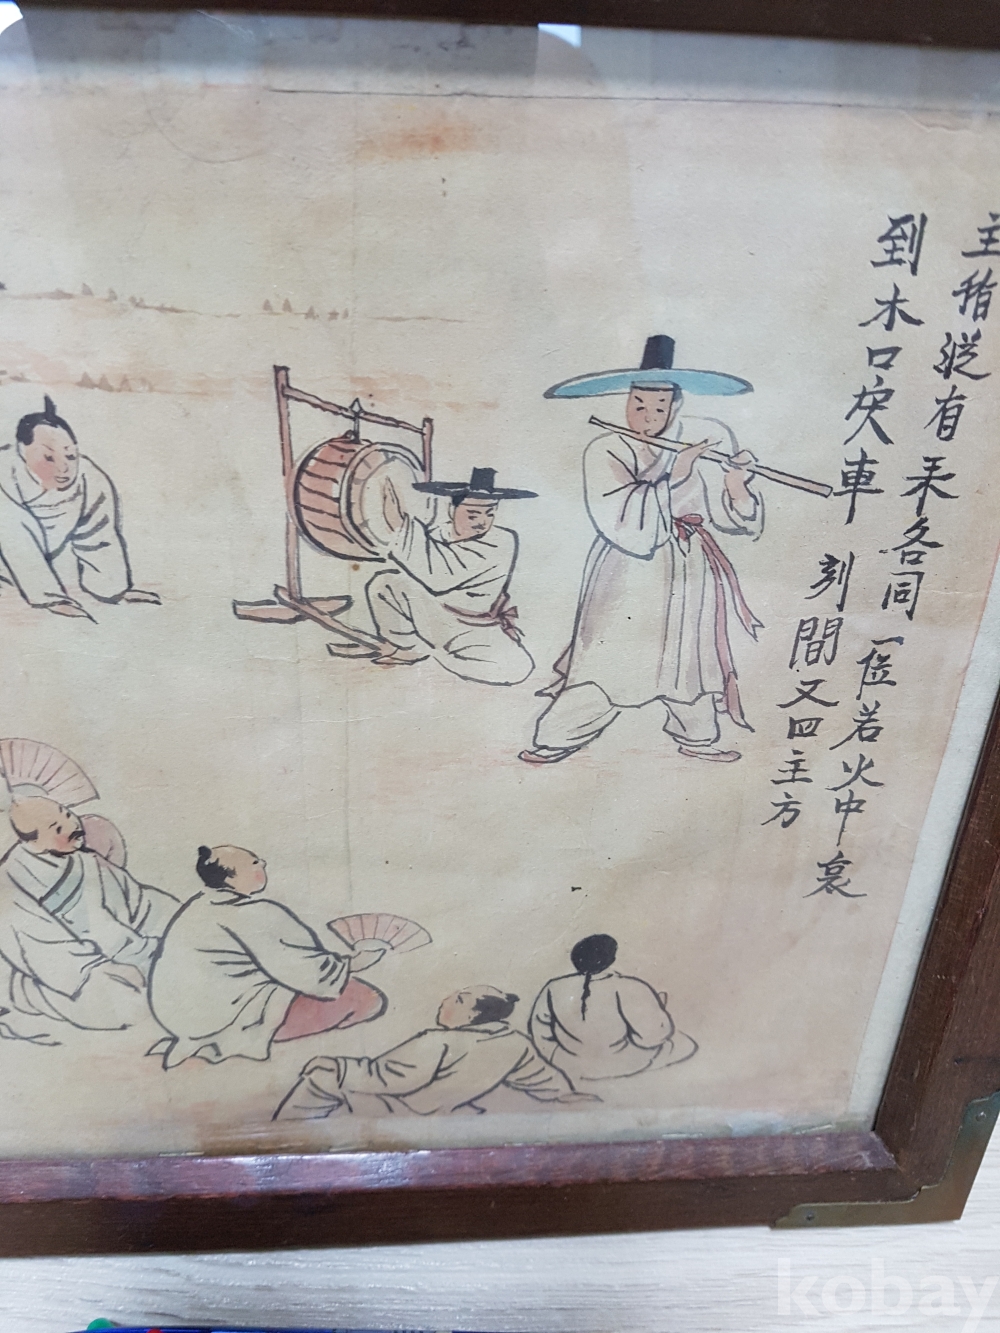 主稭從有来各同一位若火中哀
到木口戾車
刻間又四主方
kobay